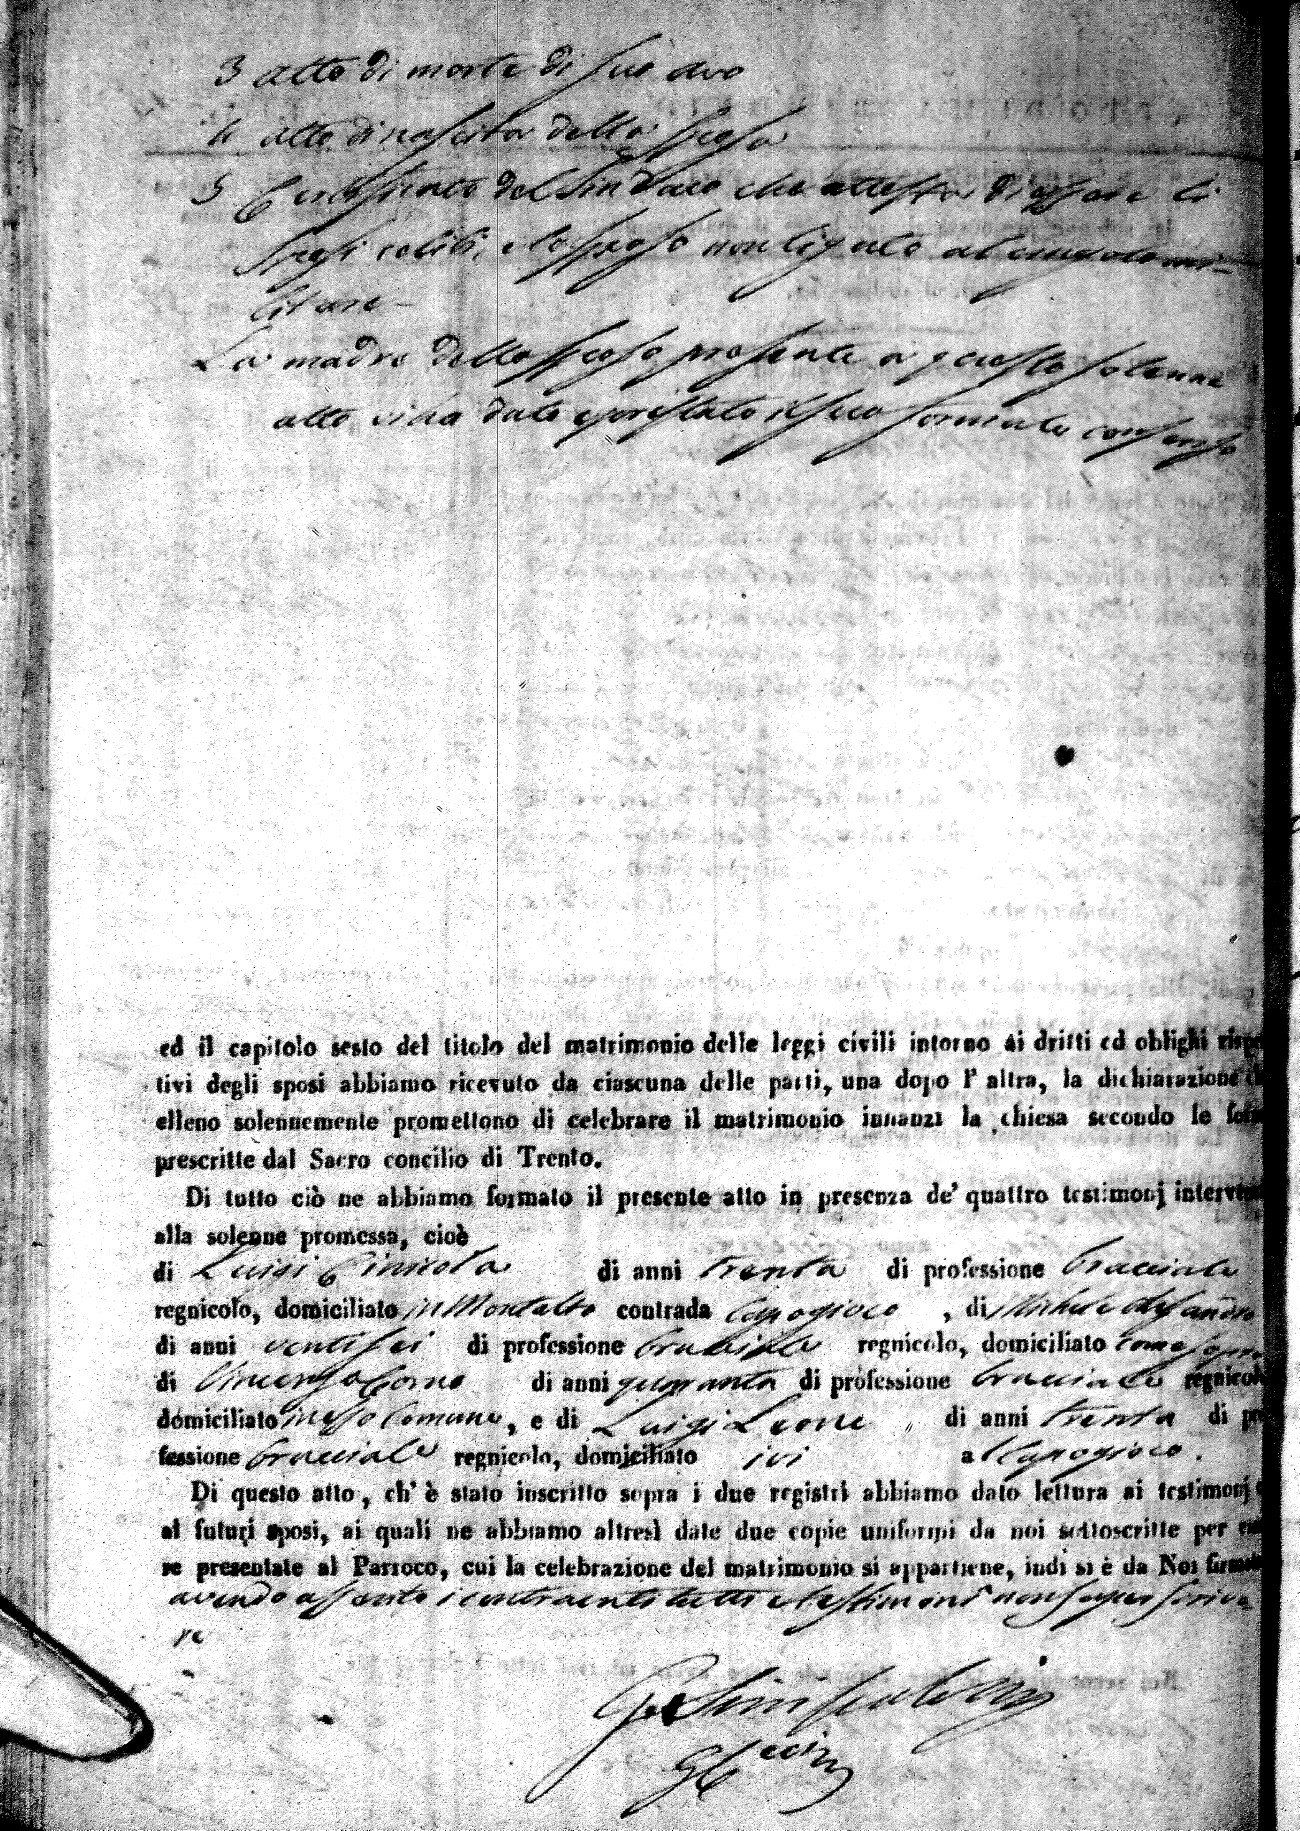 3 atto di morte di suo avo
4 atto di nascita della sposa
5 Certificato del Sindaco che attesta di essere li
sposi celibi, e lo sposo non ligato al servizio mi-
litare
La madre dello sposo presente a questo solenne
atto vi ha dato e prestato il suo formale consenso
ed il capitolo sesto del titolo del matrimonio delle leggi civili intorno ai dritti ed oblighi rispe
tivi degli sposi abbiamo ricevuto da ciascuna delle parti, una dopo l' altra, la dichiarazione
elleno solennemente promettono di celebrare il matrimonio innanzi la chiesa secondo le for
prescritte dal Sacro concilio di Trento.
Di tutto ciò ne abbiamo formato il presente atto in presenza de' quattro testimonj interven
alla solenne promessa, cioè
di Luigi Cinicola di anni trenta di professione bracciale
regnicolo, domiciliato in Montalto contrada Capogioco , di Michele
di anni ventisei di professione bracciale regnicolo, domiciliato come sopra
di Vincenzo di anni quaranta di professione bracciale regnicol
domiciliato in esso Comune, e di Luigi Leone di anni trenta di pro
fessione bracciale regnicolo, domiciliato ivi a Capogioco.
Di questo atto, ch' è stato inscritto sopra i due registri abbiamo dato lettura ai testimonj
ai futuri sposi, ai quali ne abbiamo altresì date due copie uniformi da noi sottoscritte per
re presentate al Parroco, cui la celebrazione del matrimonio si appartiene, indi si è da Noi firma
avendo asserito i contraenti tutti e testimoni non saper scrive
re